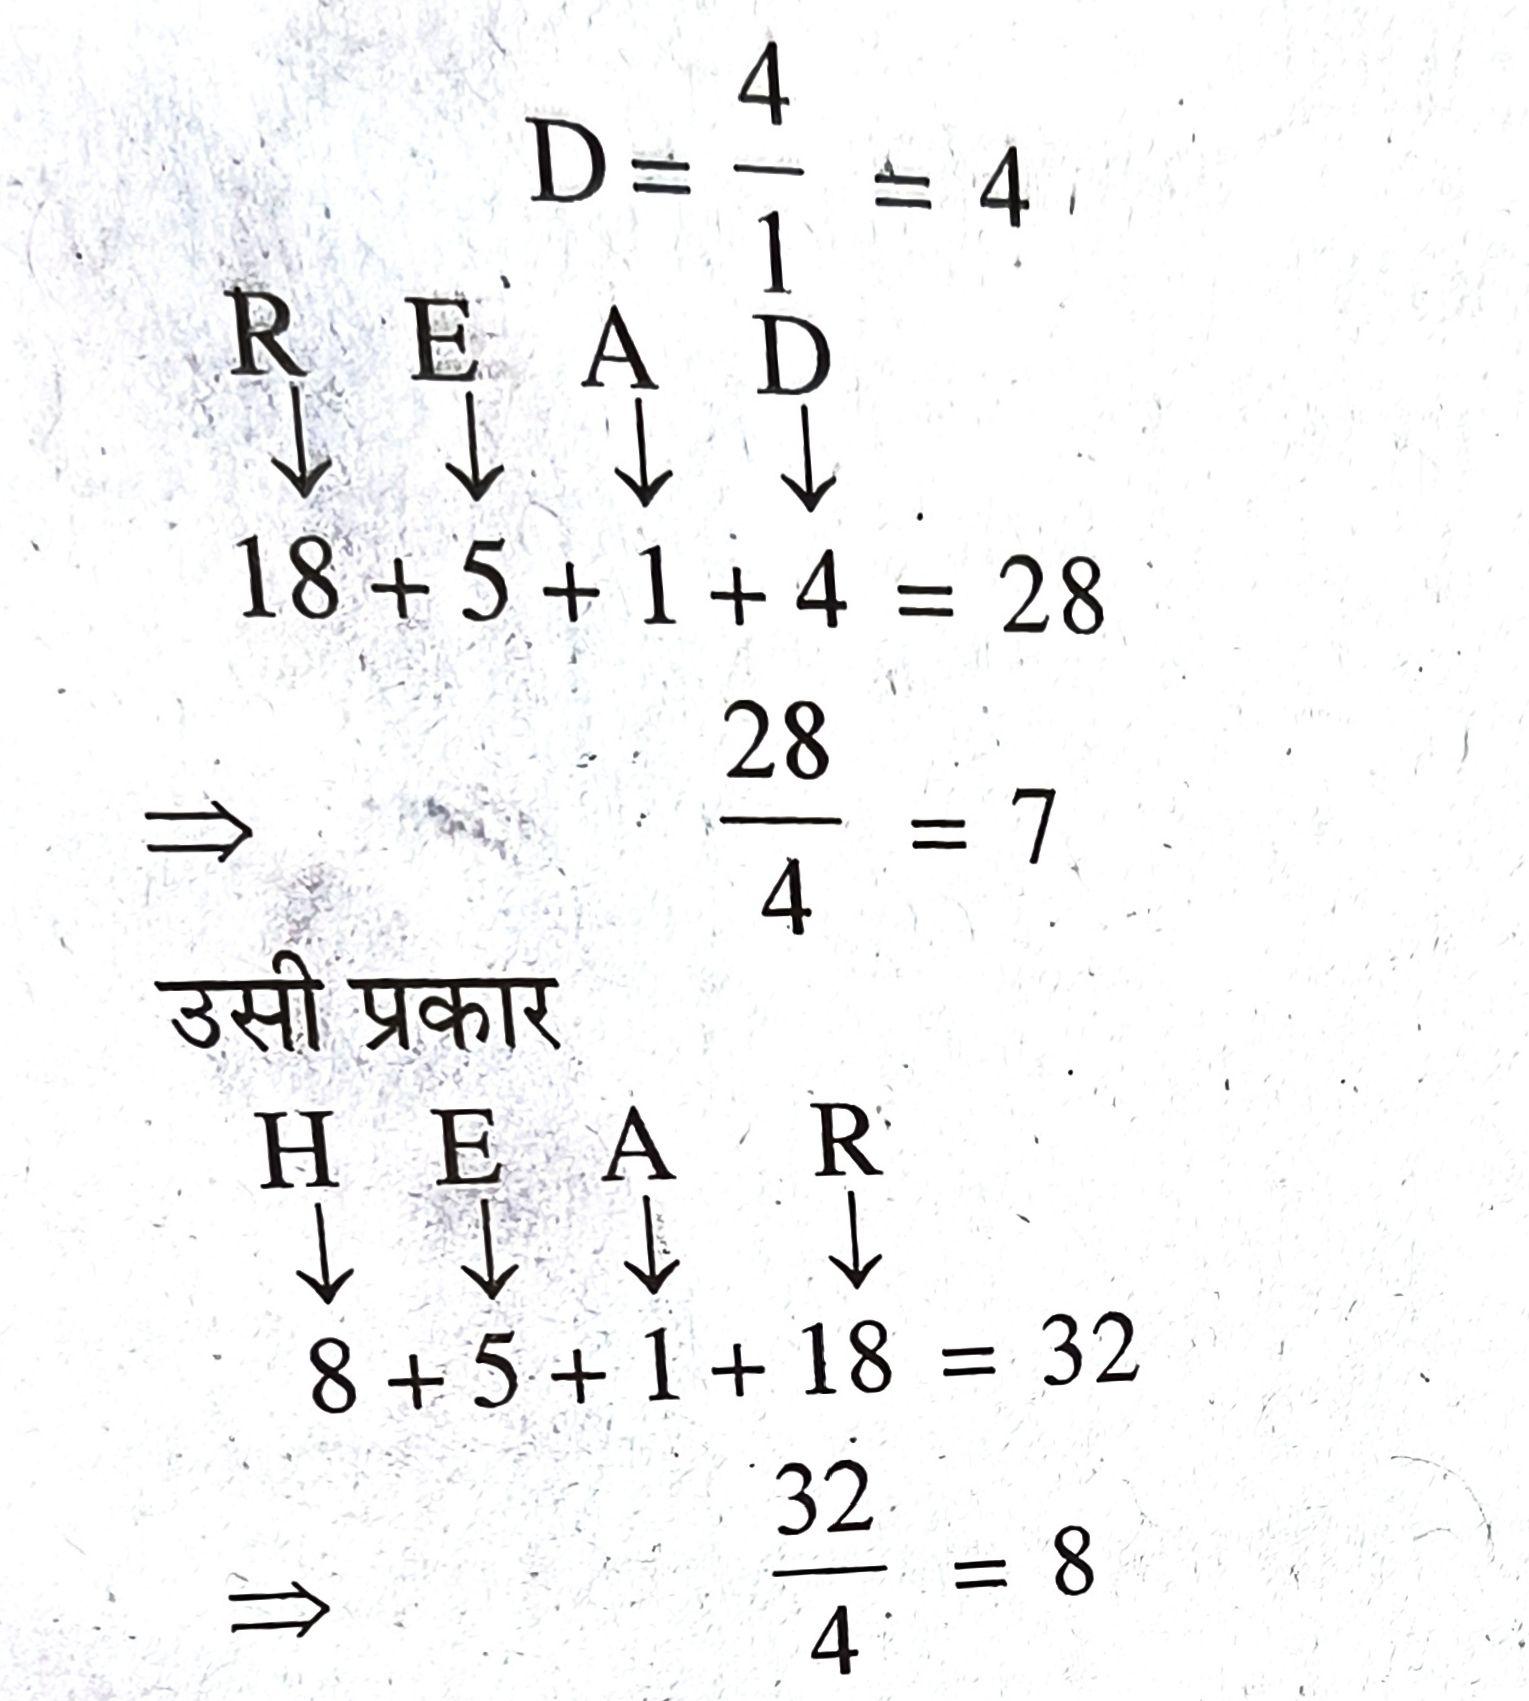 D = 4/1 = 4
R E A D
↓ ↓ ↓ ↓
18 + 5 + 1 + 4 = 28
⇒ 28/4 = 7
उसी प्रकार
H E A R
↓ ↓ ↓ ↓
8 + 5 + 1 + 18 = 32
⇒ 32/4 = 8